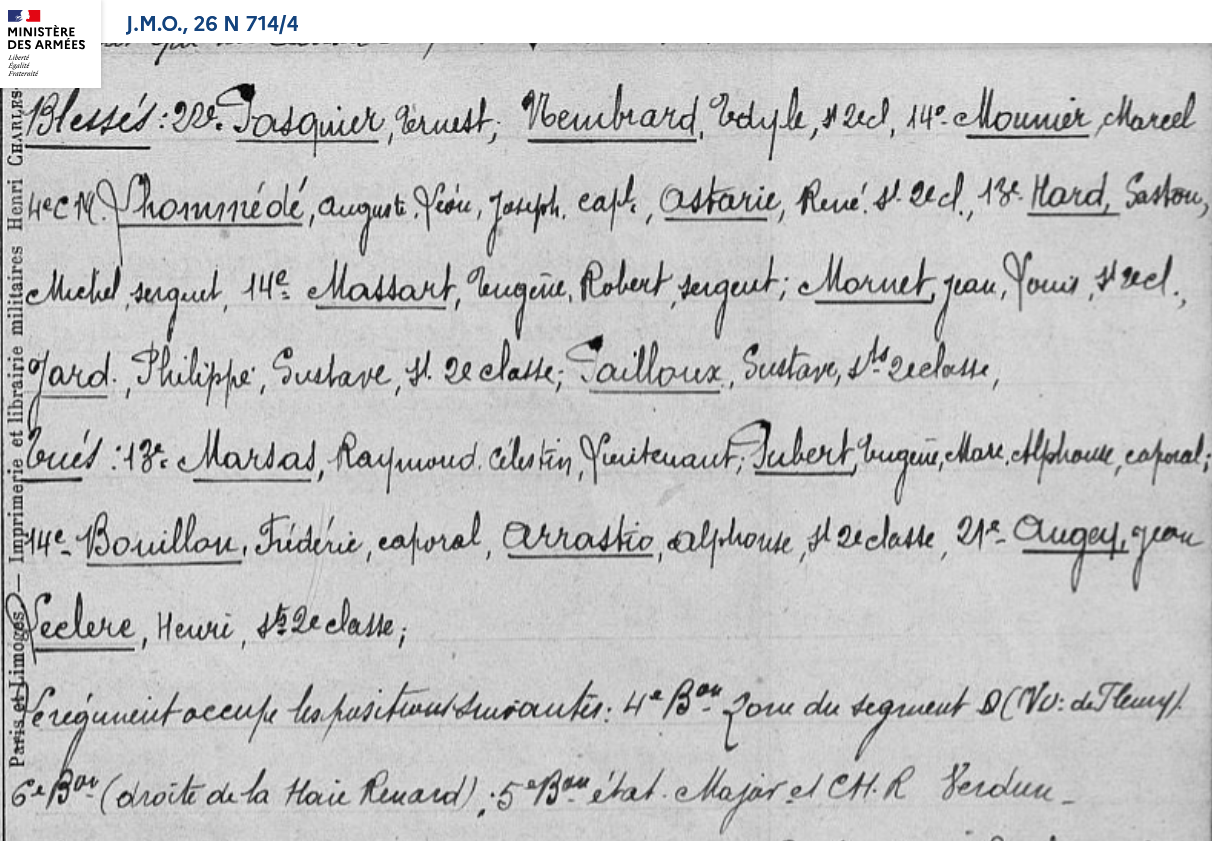 MINISTÈRE
DES ARMÉES
Liberté
Égalité
Fraternité
J.M.O., 26 N 714/4
Paris et Limoges. — Imprimerie et librairie militaires Henri CHARLES-
Blessés : 22e. Pasquier, Ernest, Hembrard, Edyle, st 2e cl, 14e. Mounier, Marcel
4e C M. Lhommédé, Auguste, Léon, Joseph, capl., Astarie, René st. 2e cl., 13e. Hard, Gaston,
Michel, sergent, 14e. Massart, Eugène, Robert, sergent ; Mornet, jean, Louis, st 2e cl.,
Jard, Philippe, Gustave, st. 2e classe ; Pailloux, Gustave, sts 2e classe,
Tués : 13e. Marsas, Raymond, Célestin, Lieutenant ; Jubert, Eugène, Marc, Alphonse, caporal ;
14e. Bouillon, Frédéric, caporal, Arrastio, alphonse, st 2e classe, 21e. Augey, jean
Leclerc, Henri, sts 2e classe ;
Le régiment occupe les positions suivantes : 4e Bon Zone du segment D (Vu : de Fleury).
6e Bon (droite de la Haie Renard) ; 5e Bon état-Major et CH.R Verdun_